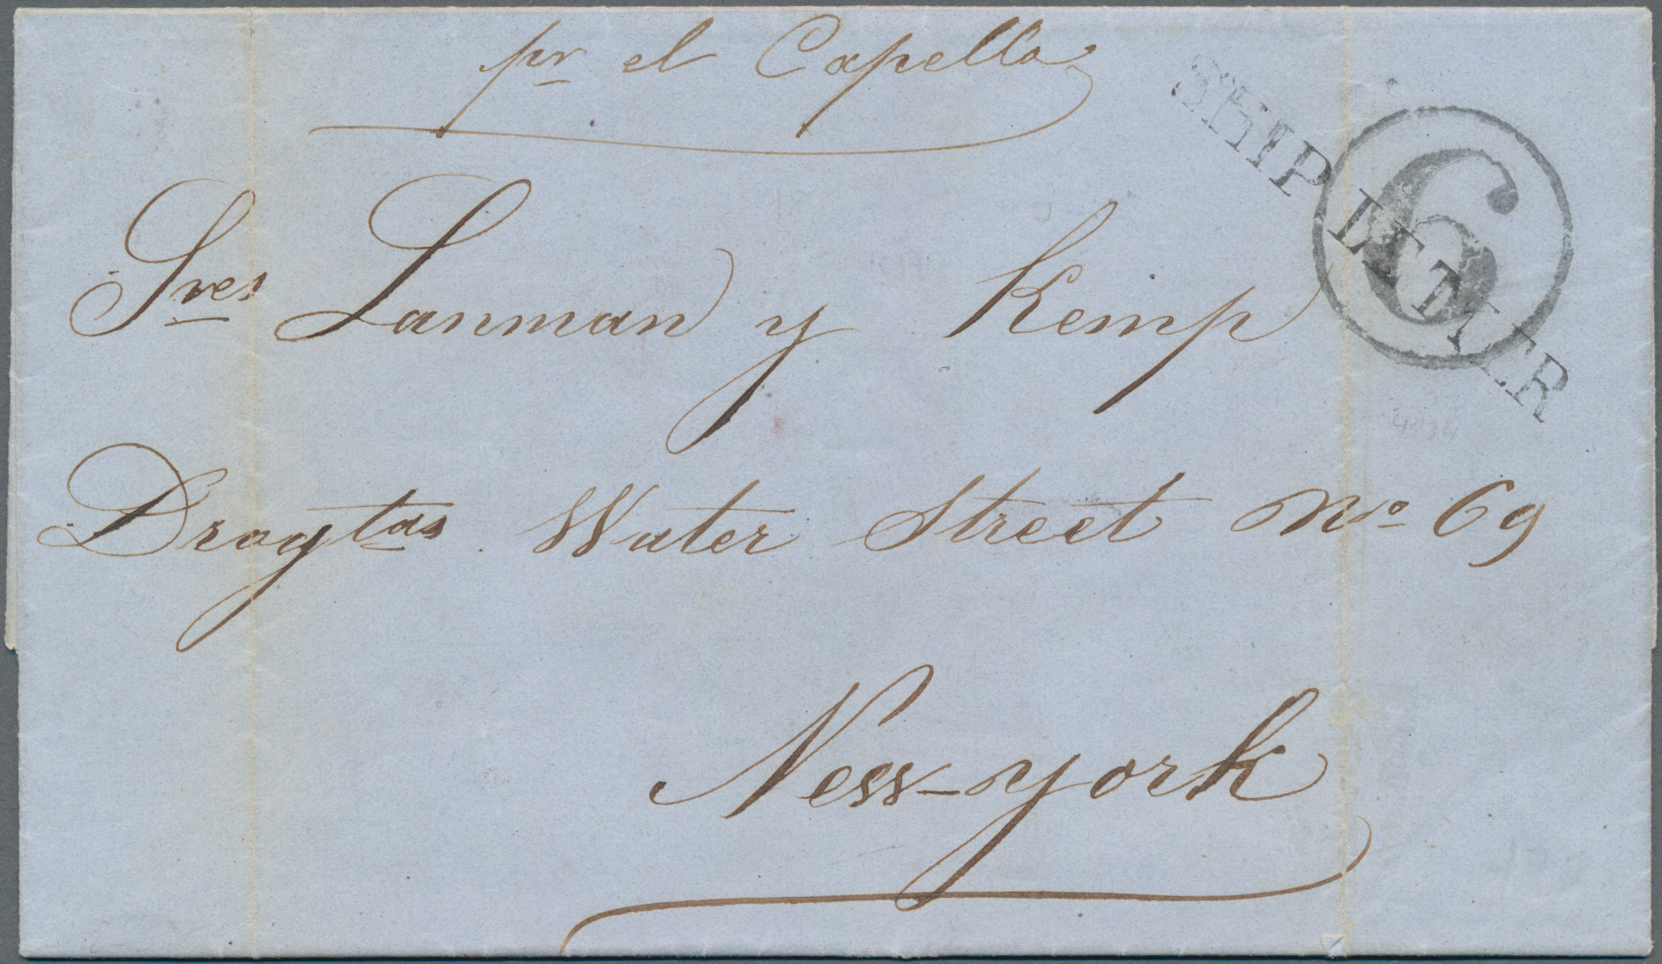 pr el Capella
SHIP LETTER
6
Sres Lanman y Kemp
Drogtas Water Street No 69
New-york
4034